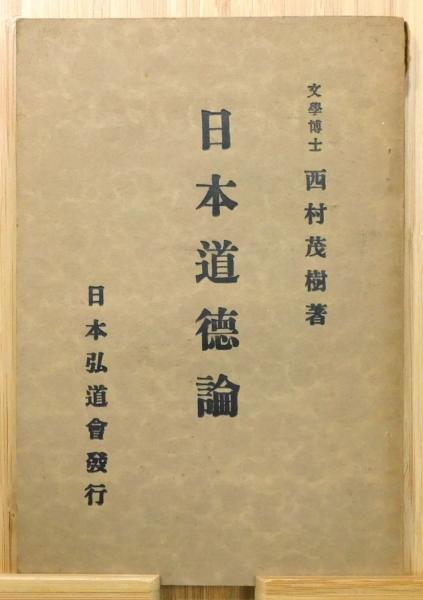 文學博士 西村茂樹著
日本道德論
日本弘道會發行